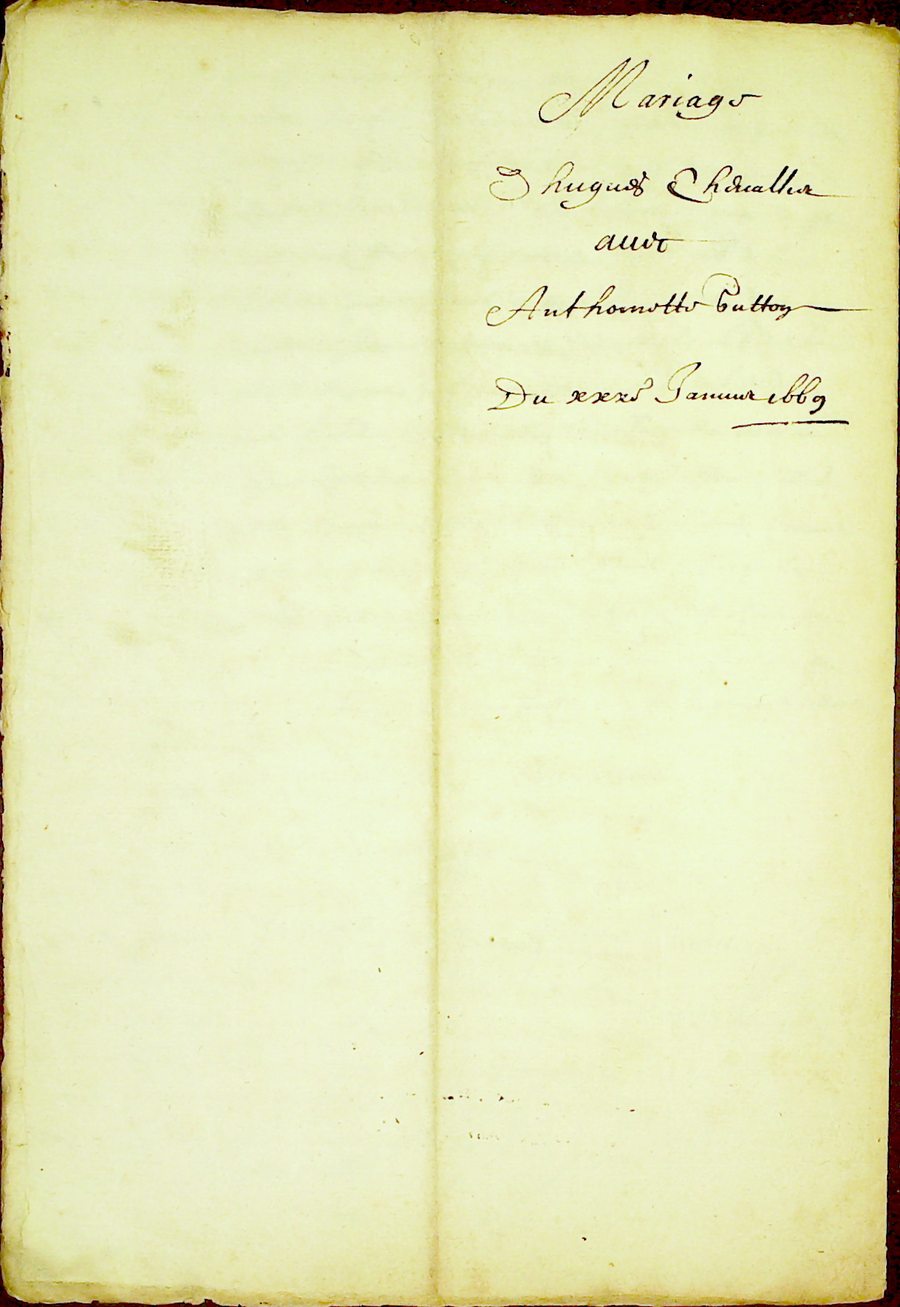 Mariage
D hugues Chevallier
avec
Anthoinette Button
Du xxxe Januier 1669